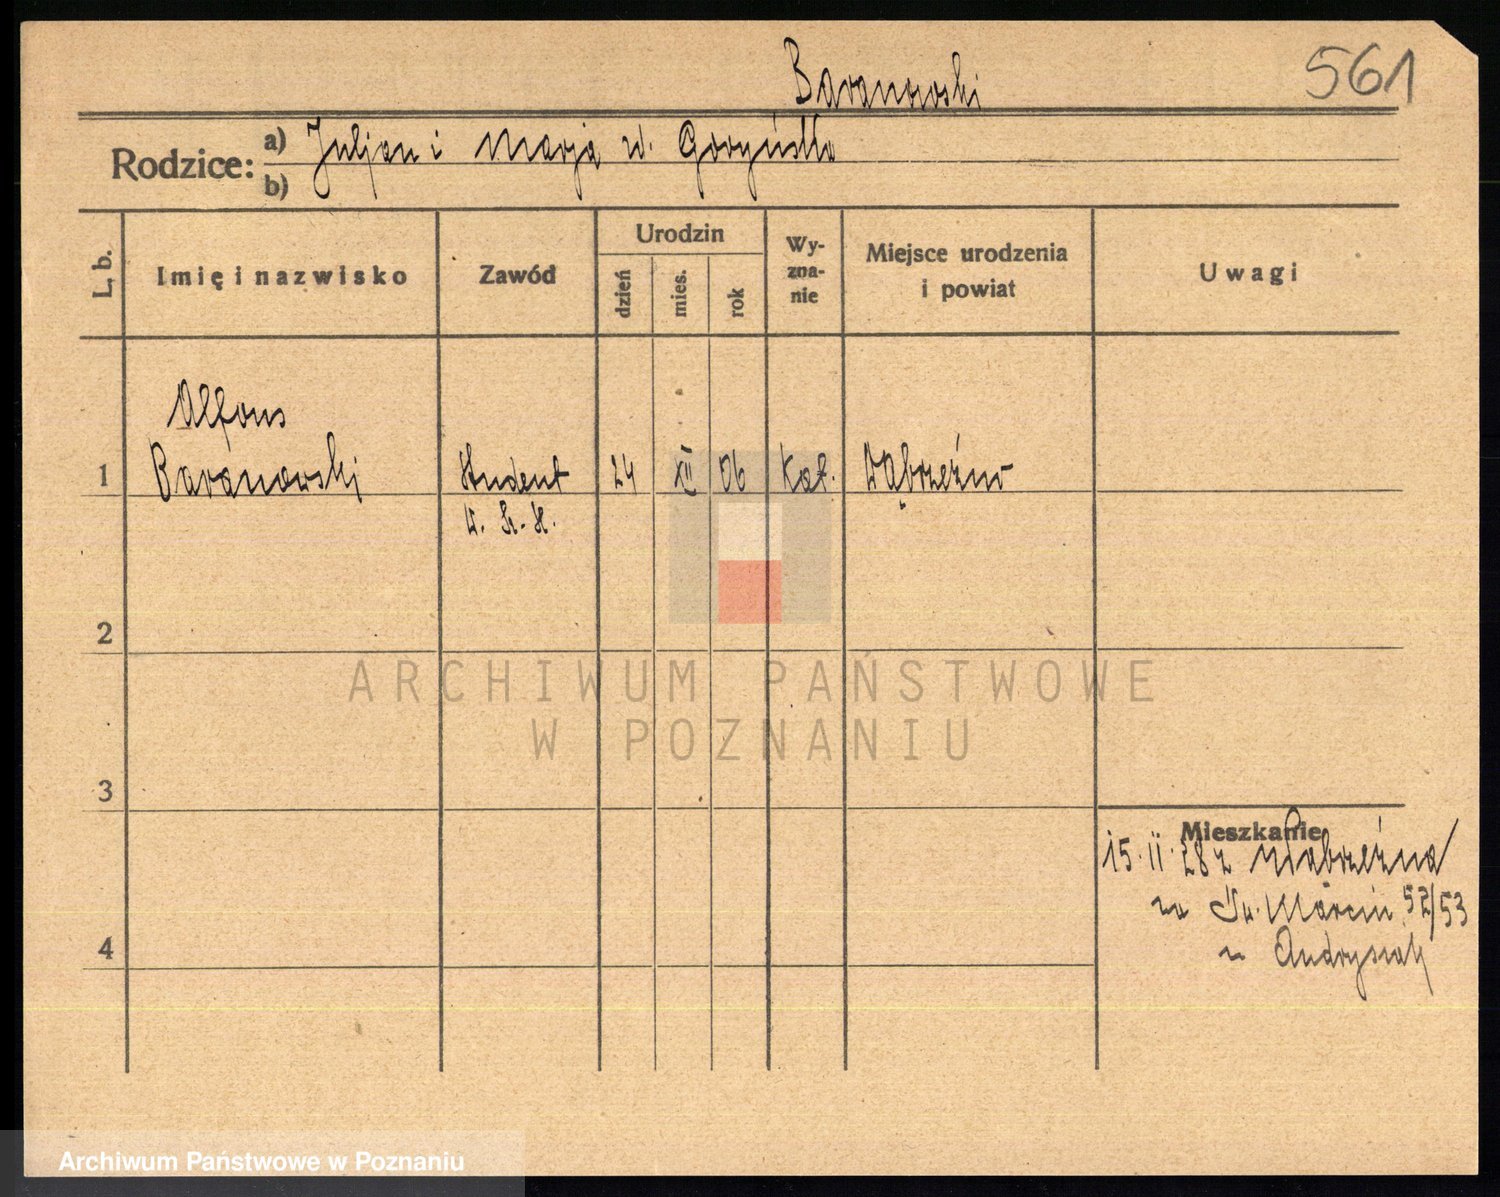 Baranowski
561
Rodzice: a) Juljan i Marja
b)
L. b.
Imię i nazwisko
Zawód
Urodzin
dzień
mies.
rok
Wy-
zna-
nie
Miejsce urodzenia
i powiat
Uwagi
Alfons
1 Baranowski Student 24 XII 06 Kat. Wąbrzeźno
W. S. H.
2
3
4
Mieszkanie
15.II.28 z Wąbrzeźna
na Św. Marcin 52/53
u Andrysiak
ARCHIWUM PAŃSTWOWE
W POZNANIU
Archiwum Państwowe w Poznaniu